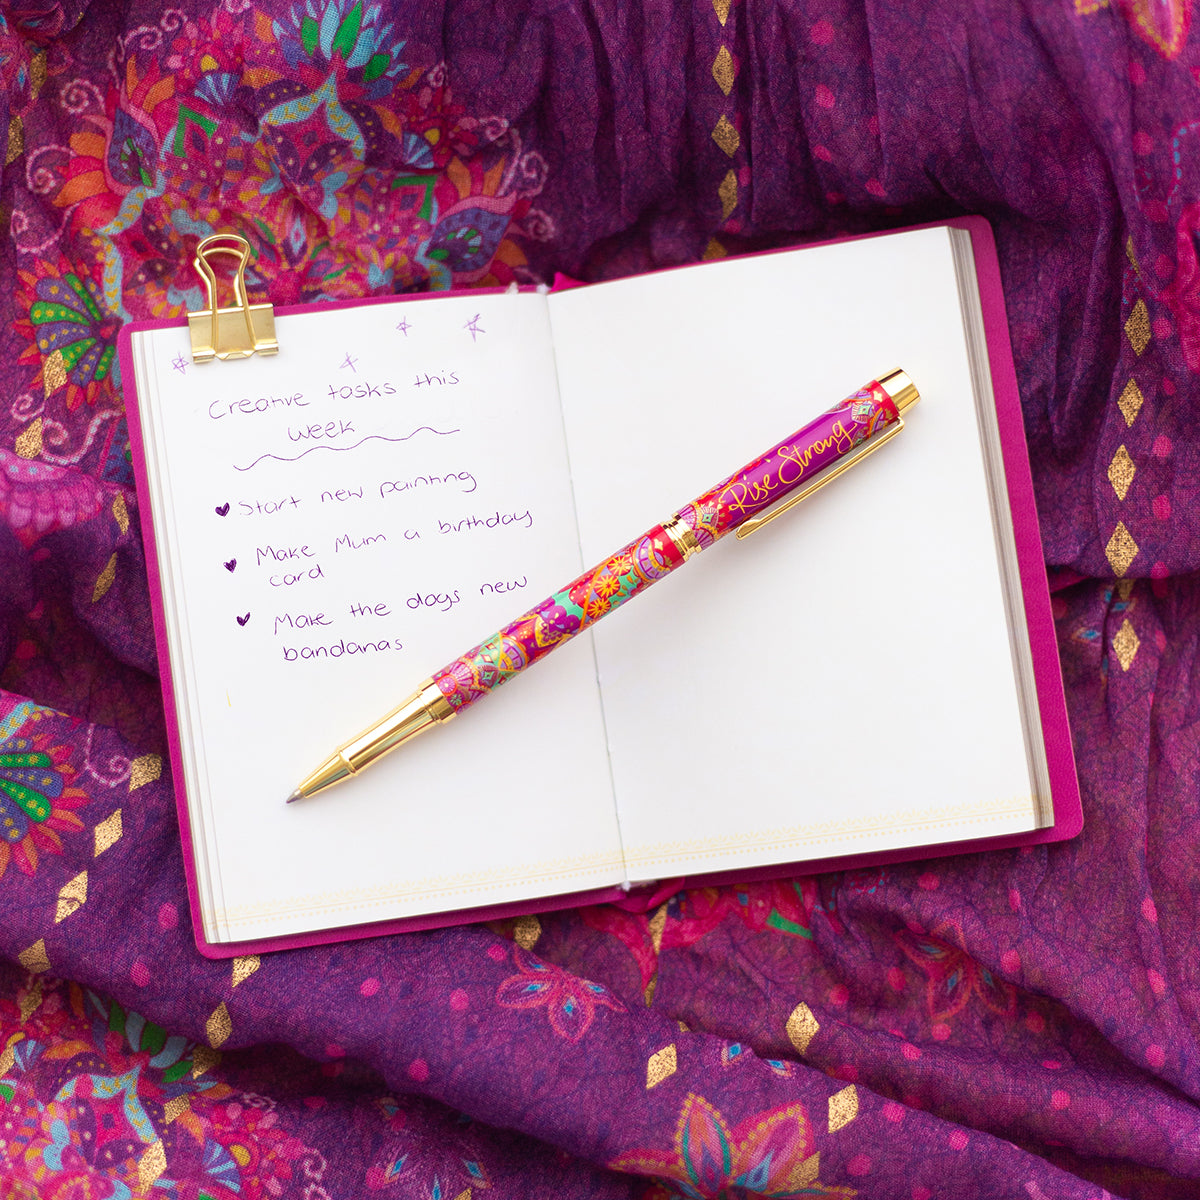 Creative tasks this
week
Start new painting
Make Mum a birthday
card
Make the dogs new
bandanas
Rise Strong